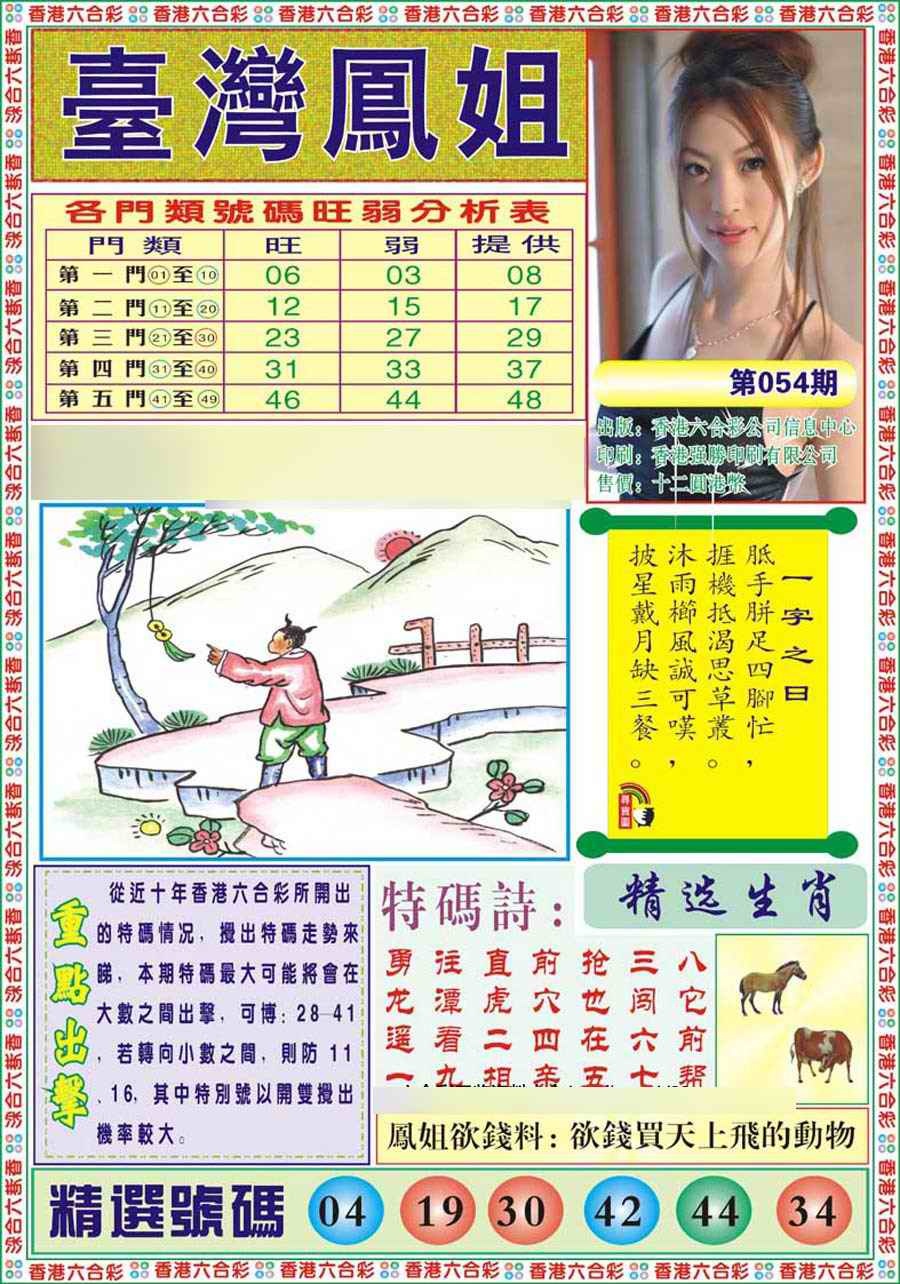 香港六合彩 香港六合彩 香港六合彩 香港六合彩 香港六合彩 香港六合彩 香港六合彩
臺灣鳳姐
各門類號碼旺弱分析表
門類 旺 弱 提供
第一門01至10 06 03 08
第二門11至20 12 15 17
第三門21至30 23 27 29
第四門31至40 31 33 37
第五門41至49 46 44 48
第054期
出版：香港六合彩公司信息中心
印刷：香港强勝印刷有限公司
售價：十二圓港幣
一字之曰
胝手胼足四腳忙，
捱機抵渴思草叢。
沐雨櫛風誠可嘆，
披星戴月缺三餐。
尋寶圖
重點出擊
從近十年香港六合彩所開出
的特碼情况，攪出特碼走勢來
睇，本期特碼最大可能將會在
大數之間出擊，可博：28—41
，若轉向小數之間，則防 11
、16，其中特別號以開雙攪出
機率較大。
特碼詩：
八它前
三闯六七
抢也在五
前穴四亲
直虎二相
汪潭看九
勇龙遥一
精选生肖
鳳姐欲錢料：欲錢買天上飛的動物
精選號碼 04 19 30 42 44 34
香港六合彩 香港六合彩 香港六合彩 香港六合彩 香港六合彩 香港六合彩 香港六合彩